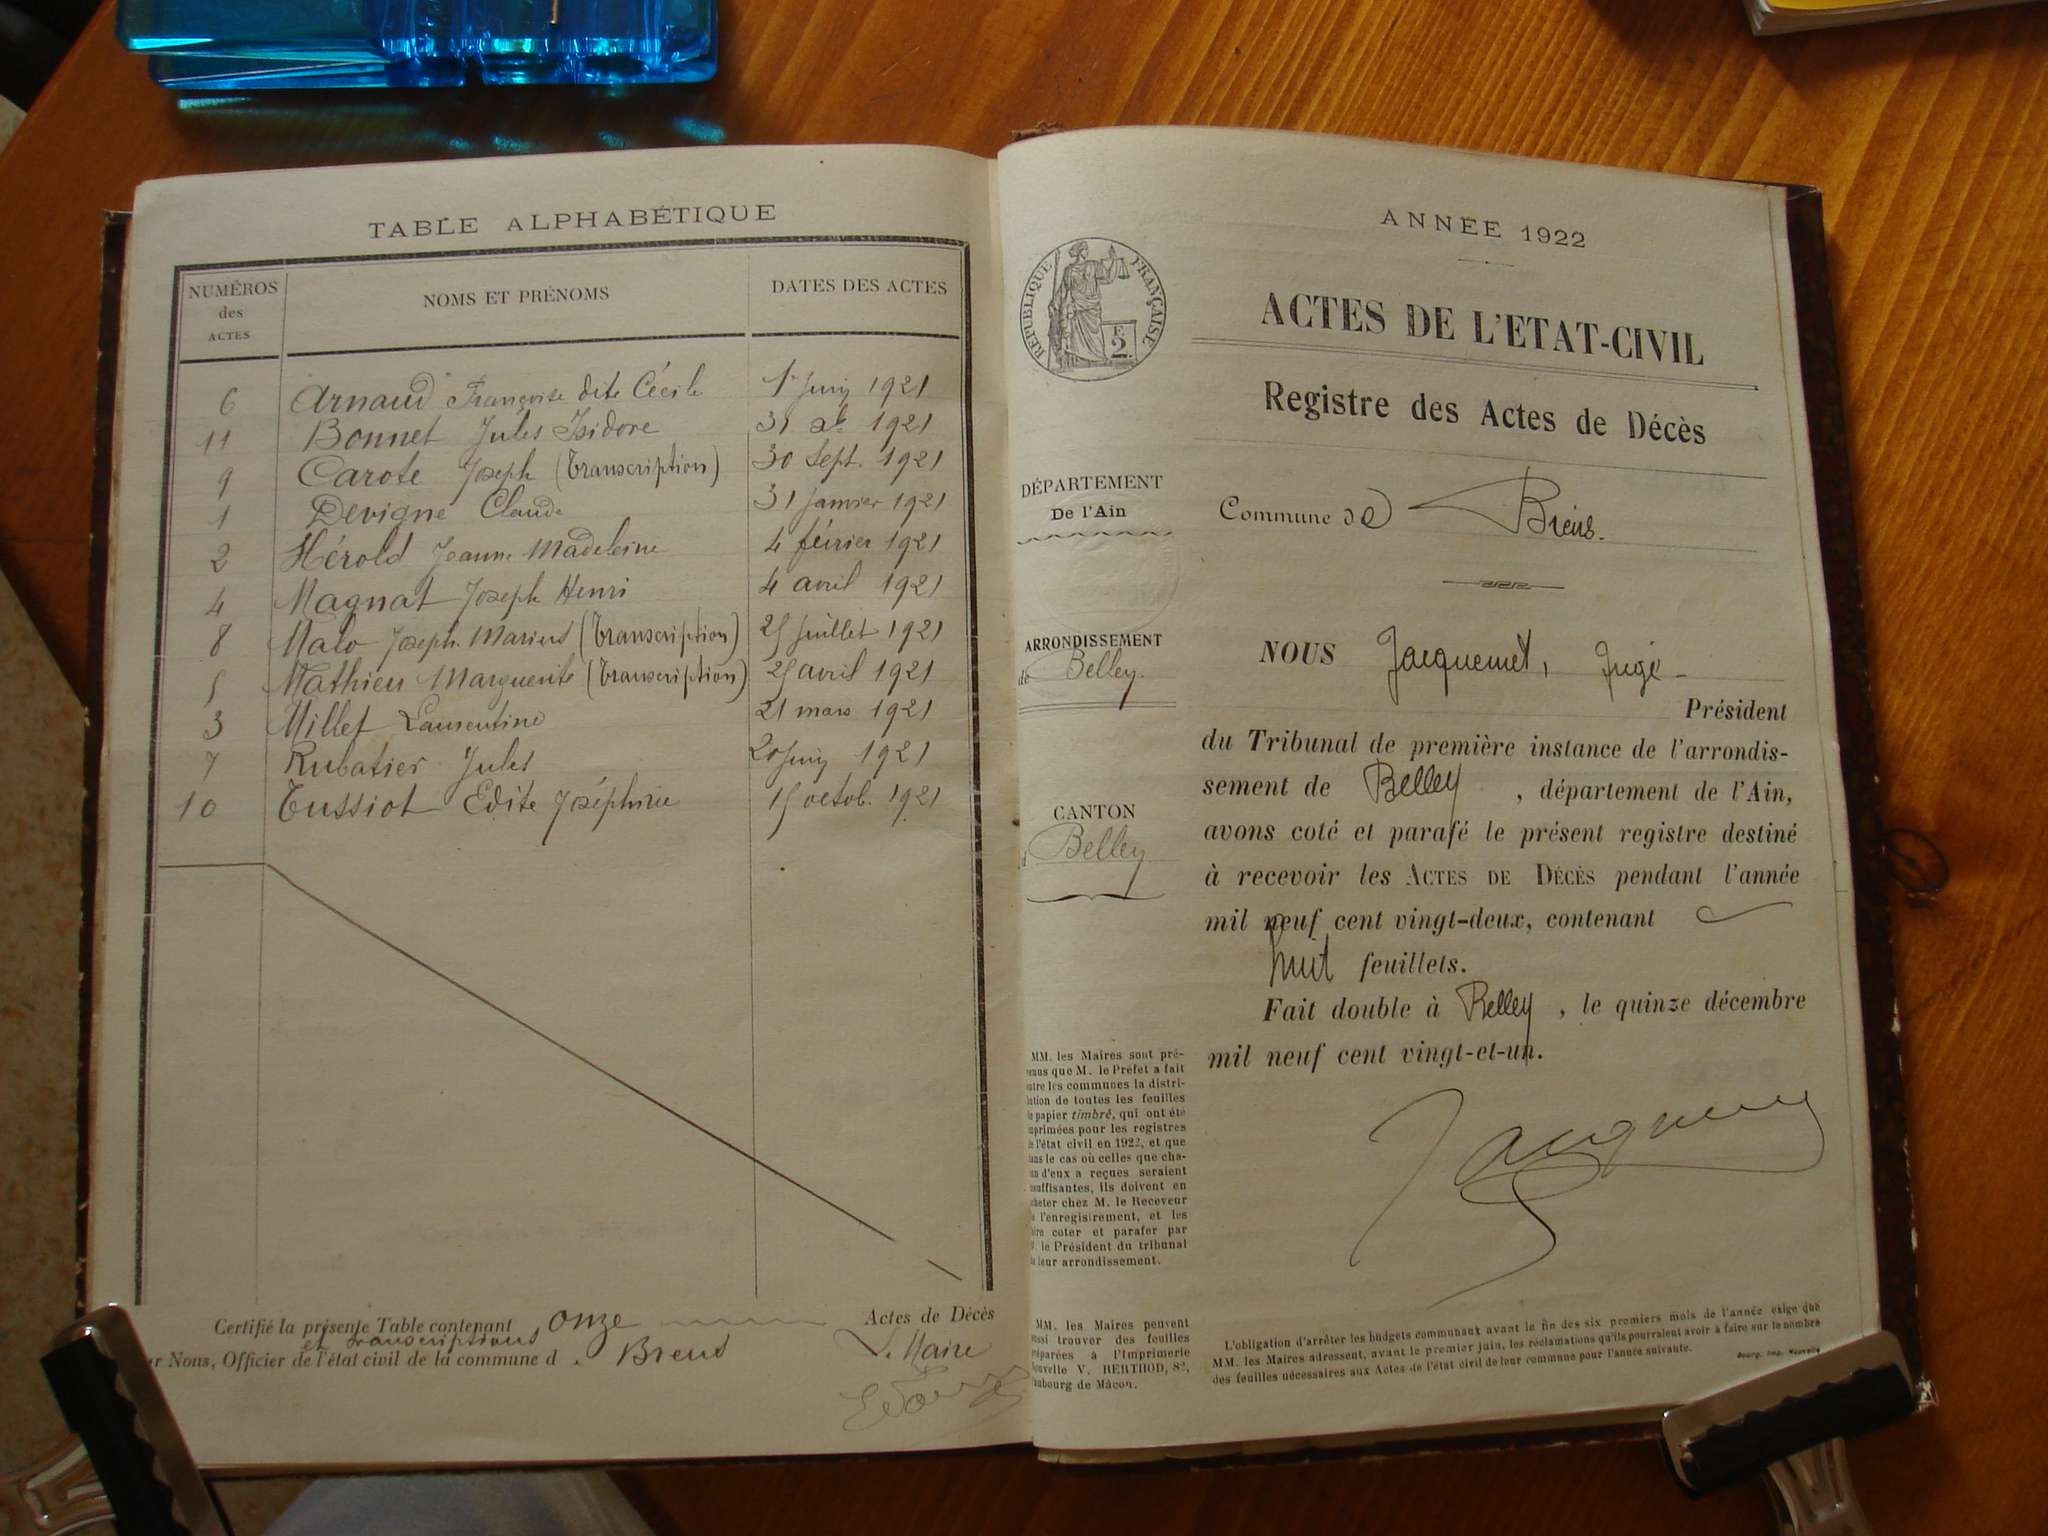 TABLE ALPHABÉTIQUE
NUMÉROS des ACTES NOMS ET PRÉNOMS DATES DES ACTES
6 Arnaud Françoise dite Cécile 1er Juin 1921
11 Bonnet Jules Isidore 31 1921
9 Carote Joseph (Transcription) 30 Sept. 1921
1 Devigne Claude 31 Janvier 1921
2 Hérold Jeanne Madeleine 4 février 1921
4 Magnat Joseph Henri 4 avril 1921
8 Malo Joseph Marius (Transcription) 25 Juillet 1921
5 Mathieu Marguerite (Transcription) 25 avril 1921
3 Millet Laurentine 21 mars 1921
7 Rubatier Jules 20 Juin 1921
10 Tussiot Edite Joséphine 15 octob. 1921
Certifié la présente Table contenant onze Actes de Décès
et transcriptions
r Nous, Officier de l'état civil de la commune d. Brens Le Maire
ANNÉE 1922
RÉPUBLIQUE FRANÇAISE
2
ACTES DE L'ETAT-CIVIL
Registre des Actes de Décès
DÉPARTEMENT
De l'Ain
Commune de Brens.
ARRONDISSEMENT
de Belley
CANTON
Belley
NOUS Jacquemet, Juge
Président
du Tribunal de première instance de l'arrondis-
sement de Belley, département de l'Ain,
avons coté et parafé le présent registre destiné
à recevoir les ACTES DE DÉCÈS pendant l'année
mil neuf cent vingt-deux, contenant
huit feuillets.
Fait double à Belley, le quinze décembre
mil neuf cent vingt-et-un.
MM. les Maires sont pré-
venus que M. le Préfet a fait
ntre les communes la distri-
bution de toutes les feuilles
e papier timbré, qui ont été
mprimées pour les registres
e l'état civil en 1922, et que
ans le cas où celles que cha-
un d'eux a reçues seraient
nsuffisantes, ils doivent en
cheter chez M. le Receveur
e l'enregistrement, et les
aire coter et parafer par
M. le Président du tribunal
e leur arrondissement.
MM. les Maires peuvent
ussi trouver des feuilles
réparées à l'Imprimerie
Nouvelle V. BERTHOD, 82,
aubourg de Mâcon.
L'obligation d'arrêter les budgets communaux avant la fin des six premiers mois de l'année exige que
MM. les Maires adressent, avant le premier juin, les réclamations qu'ils pourraient avoir à faire sur le nombre
des feuilles nécessaires aux Actes de l'état civil de leur commune pour l'année suivante.
Bourg, Imp. Nouvelle